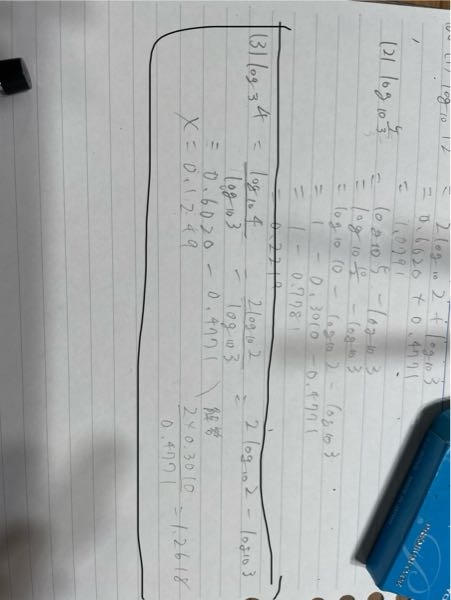 log₁₀12 = 2log₁₀2 + log₁₀3
= 0.6020 + 0.4771
= 1.0791
(2) log₁₀5/3 = log₁₀5 - log₁₀3
= log₁₀10/2 - log₁₀3
= log₁₀10 - log₁₀2 - log₁₀3
= 1 - 0.3010 - 0.4771
= 1 - 0.7781
= 0.2219
(3) log₃4 = log₁₀4/log₁₀3 = 2log₁₀2/log₁₀3 = 2log₁₀2 - log₁₀3
= 0.6020 - 0.4771
X = 0.1249
解答
2×0.3010/0.4771 = 1.2618